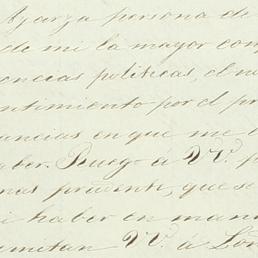 Azarza persona de
de mi la mayor con
encias politicas, el ne
ntimiento por el pr
ancias en que me
aber. Ruego á VV. p
mas prudente, que s
i haber en man
emetan VV. á Lon